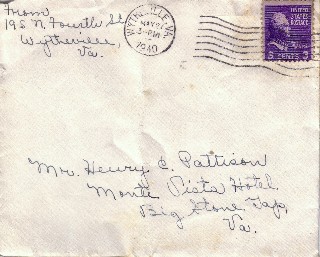 From
195 N. Fourth St
Wytheville,
Va.
WYTHEVILLE, VA.
3-PM
1940
UNITED
STATES
POSTAGE
3 CENTS 3
Mr. Henry C. Pattison
Monte Vista Hotel,
Big Stone Gap,
Va.